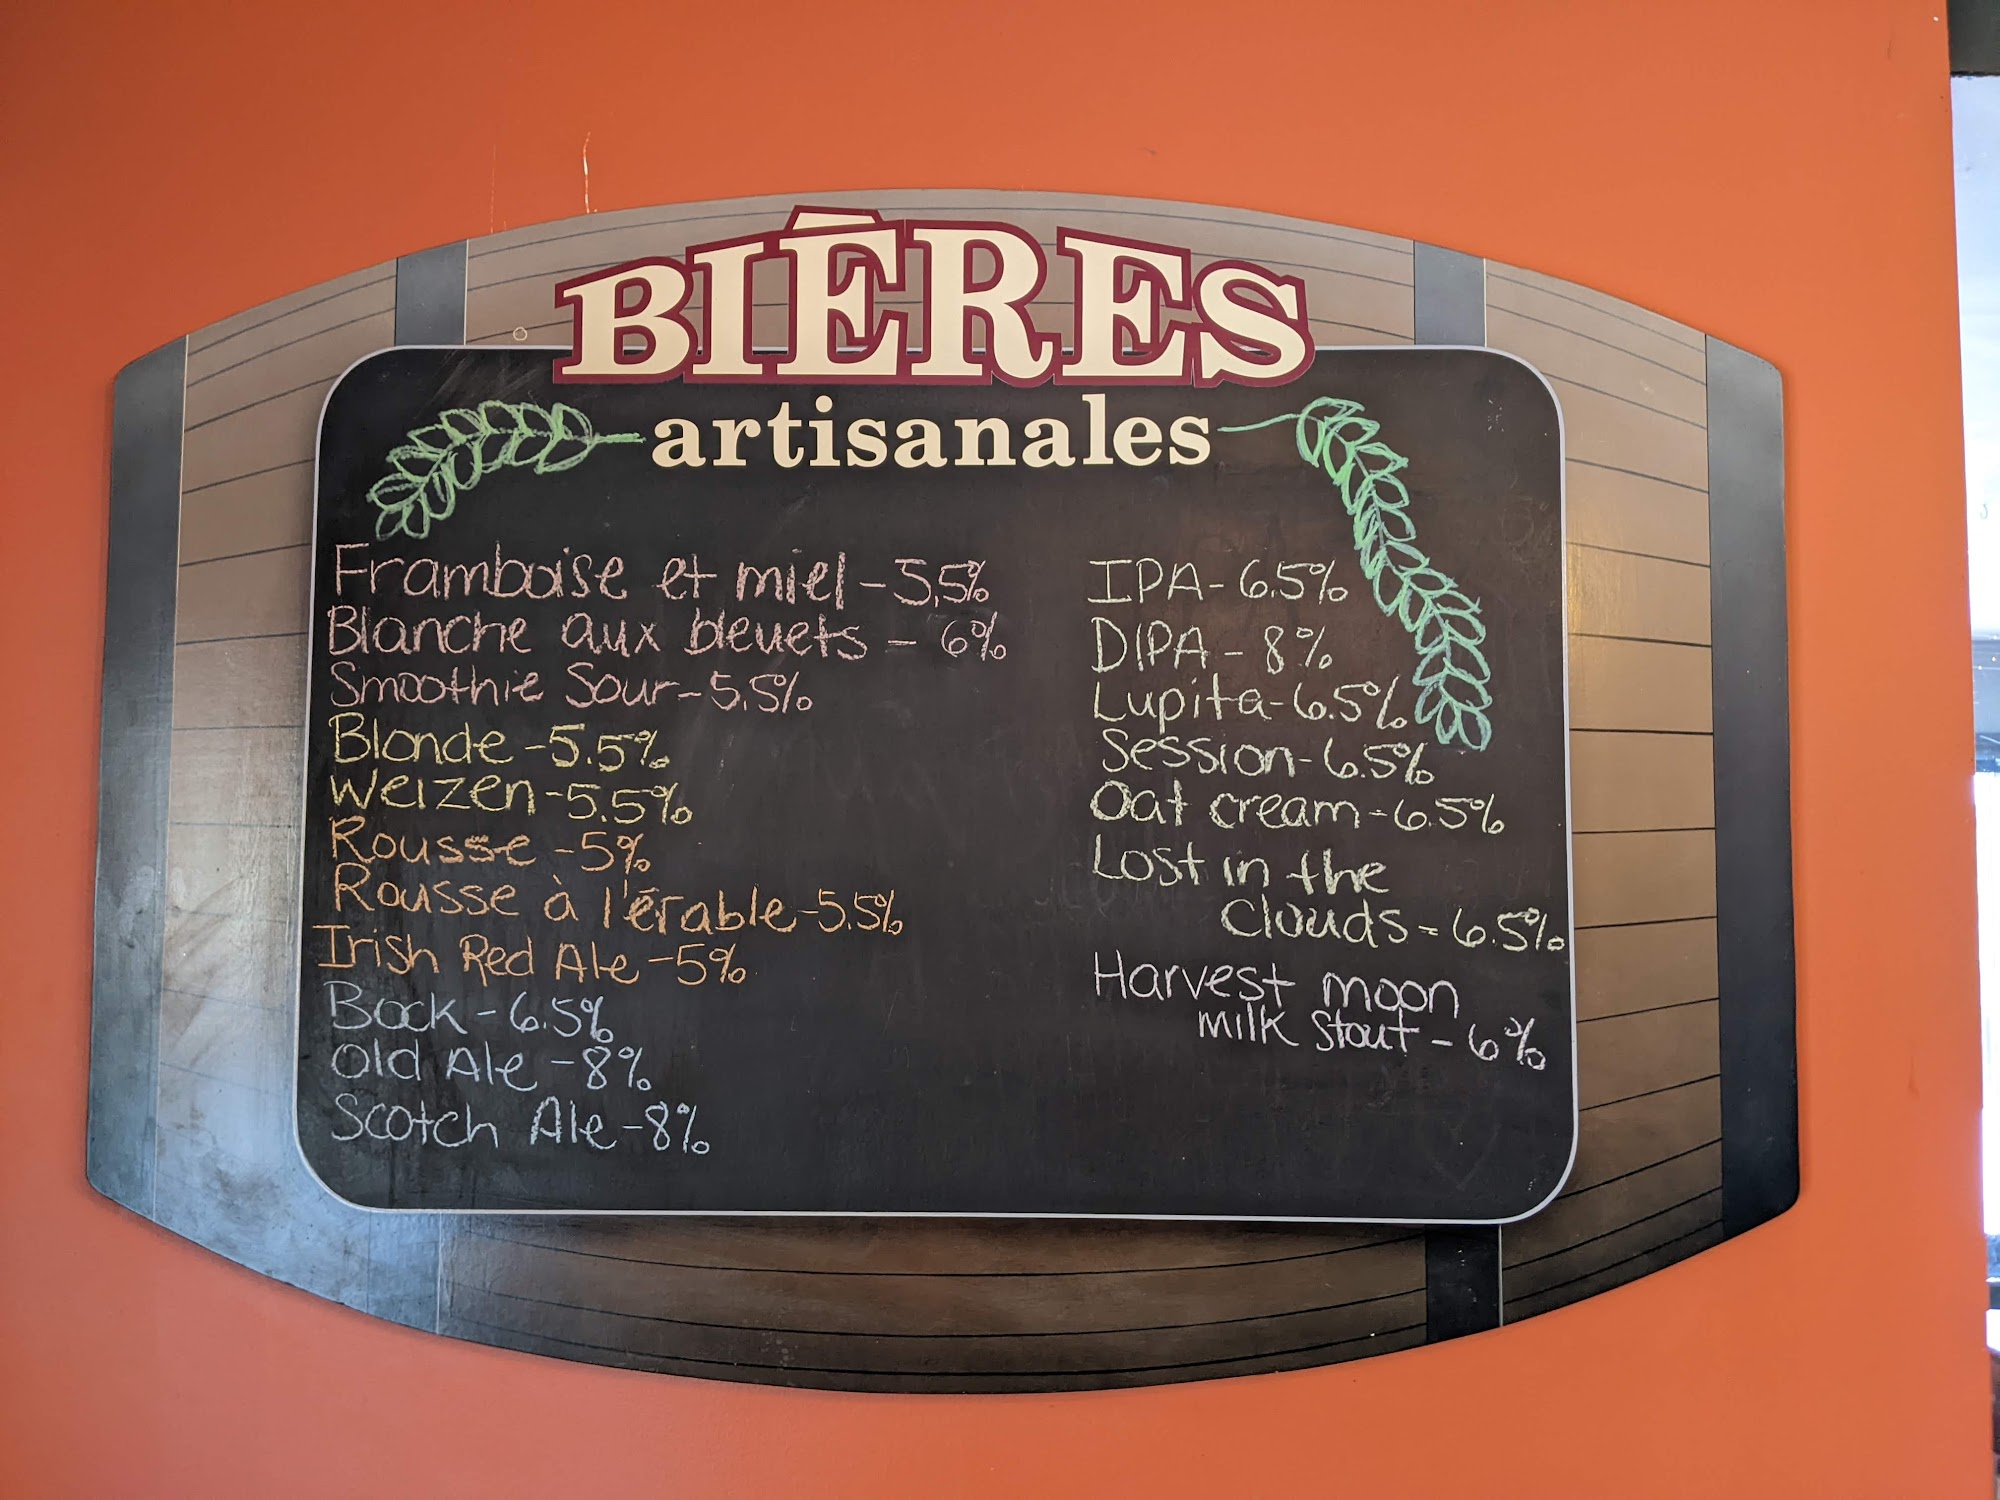 BIÈRES
artisanales
Framboise et miel - 5,5%
Blanche aux bleuets - 6%
Smoothie Sour - 5.5%
Blonde - 5.5%
Weizen - 5.5%
Rousse - 5%
Rousse à l'érable - 5.5%
Irish Red Ale - 5%
Bock - 6.5%
Old Ale - 8%
Scotch Ale - 8%
IPA - 6.5%
DIPA - 8%
Lupita - 6.5%
Session - 6.5%
Oat cream - 6.5%
Lost in the
clouds - 6.5%
Harvest moon
milk stout - 6%